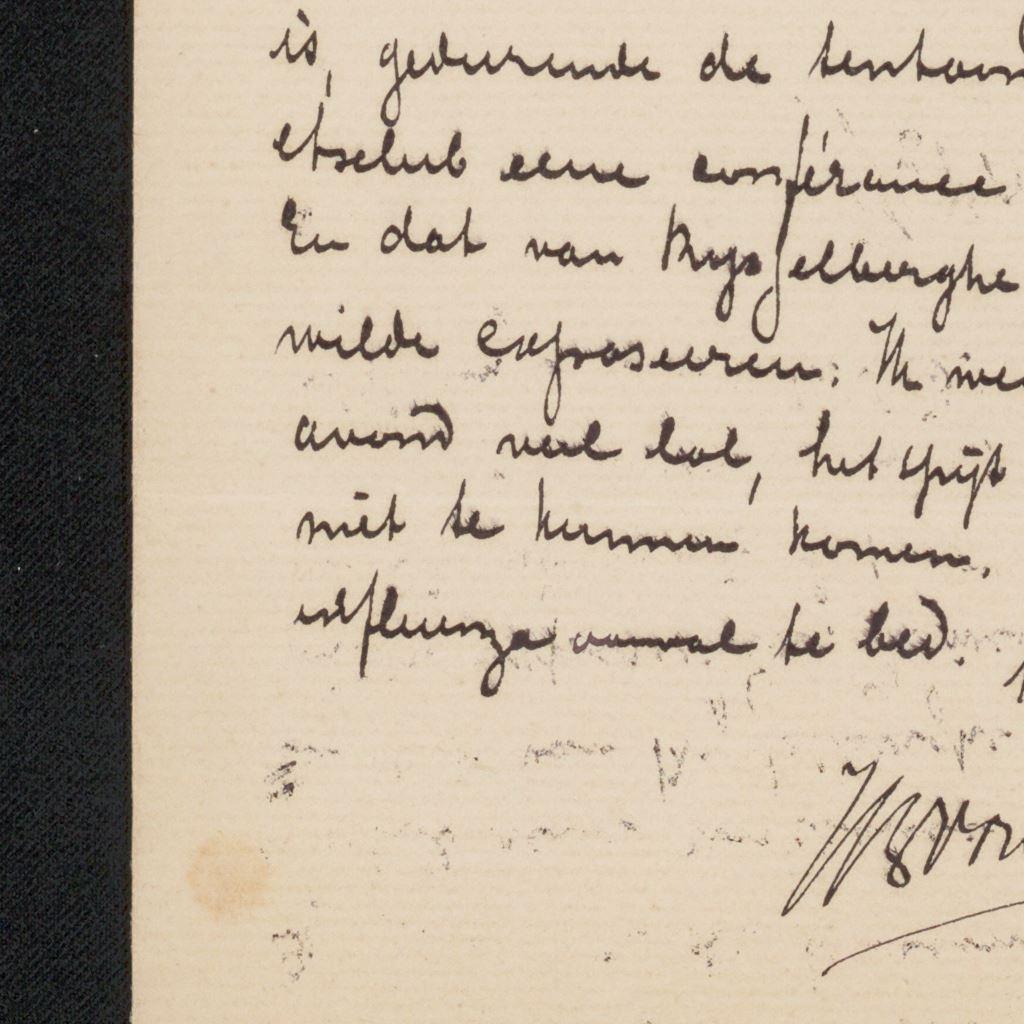 is, gedurende de tentoon
etsclub eene conférance
En dat van Rysselberghe
wilde exposeeren. Ik
avond veel lol, het spijt
niet te kunnen komen.
influenza aanval te bed.